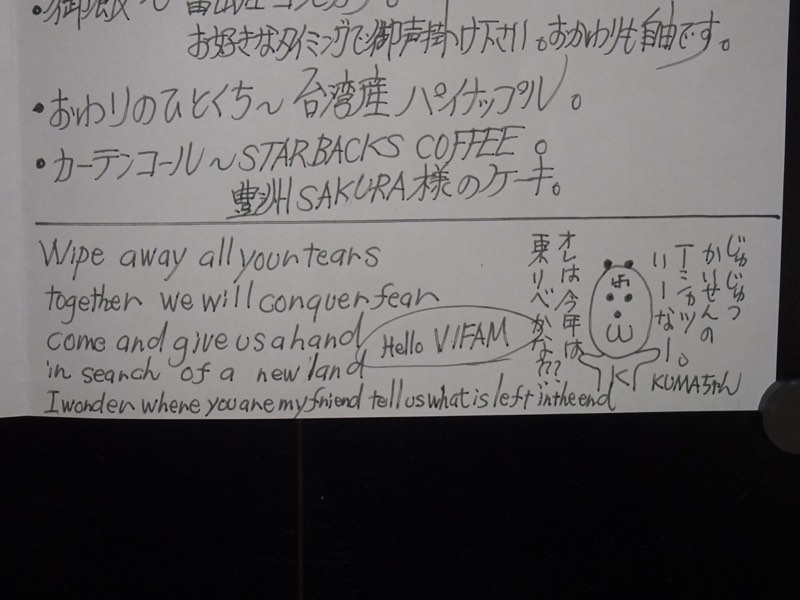 ・御飯〜富山産コシヒカリ。
お好きなタイミングで御声掛け下さい。おかわりも自由です。
・おわりのひとくち〜台湾産パイナップル。
・カーテンコール〜STARBACKS COFFEE。
豊洲SAKURA様のケーキ。
Wipe away all your tears
together we will conquer fear
come and give us a hand
in search of a new land
I wonder where you are my friend tell us what is left in the end
Hello VIFAM
じゅじゅつ
かいせんの
Tシャツ
いーなー。
KUMAちゃん
K
オレは今年は
東リべかな??